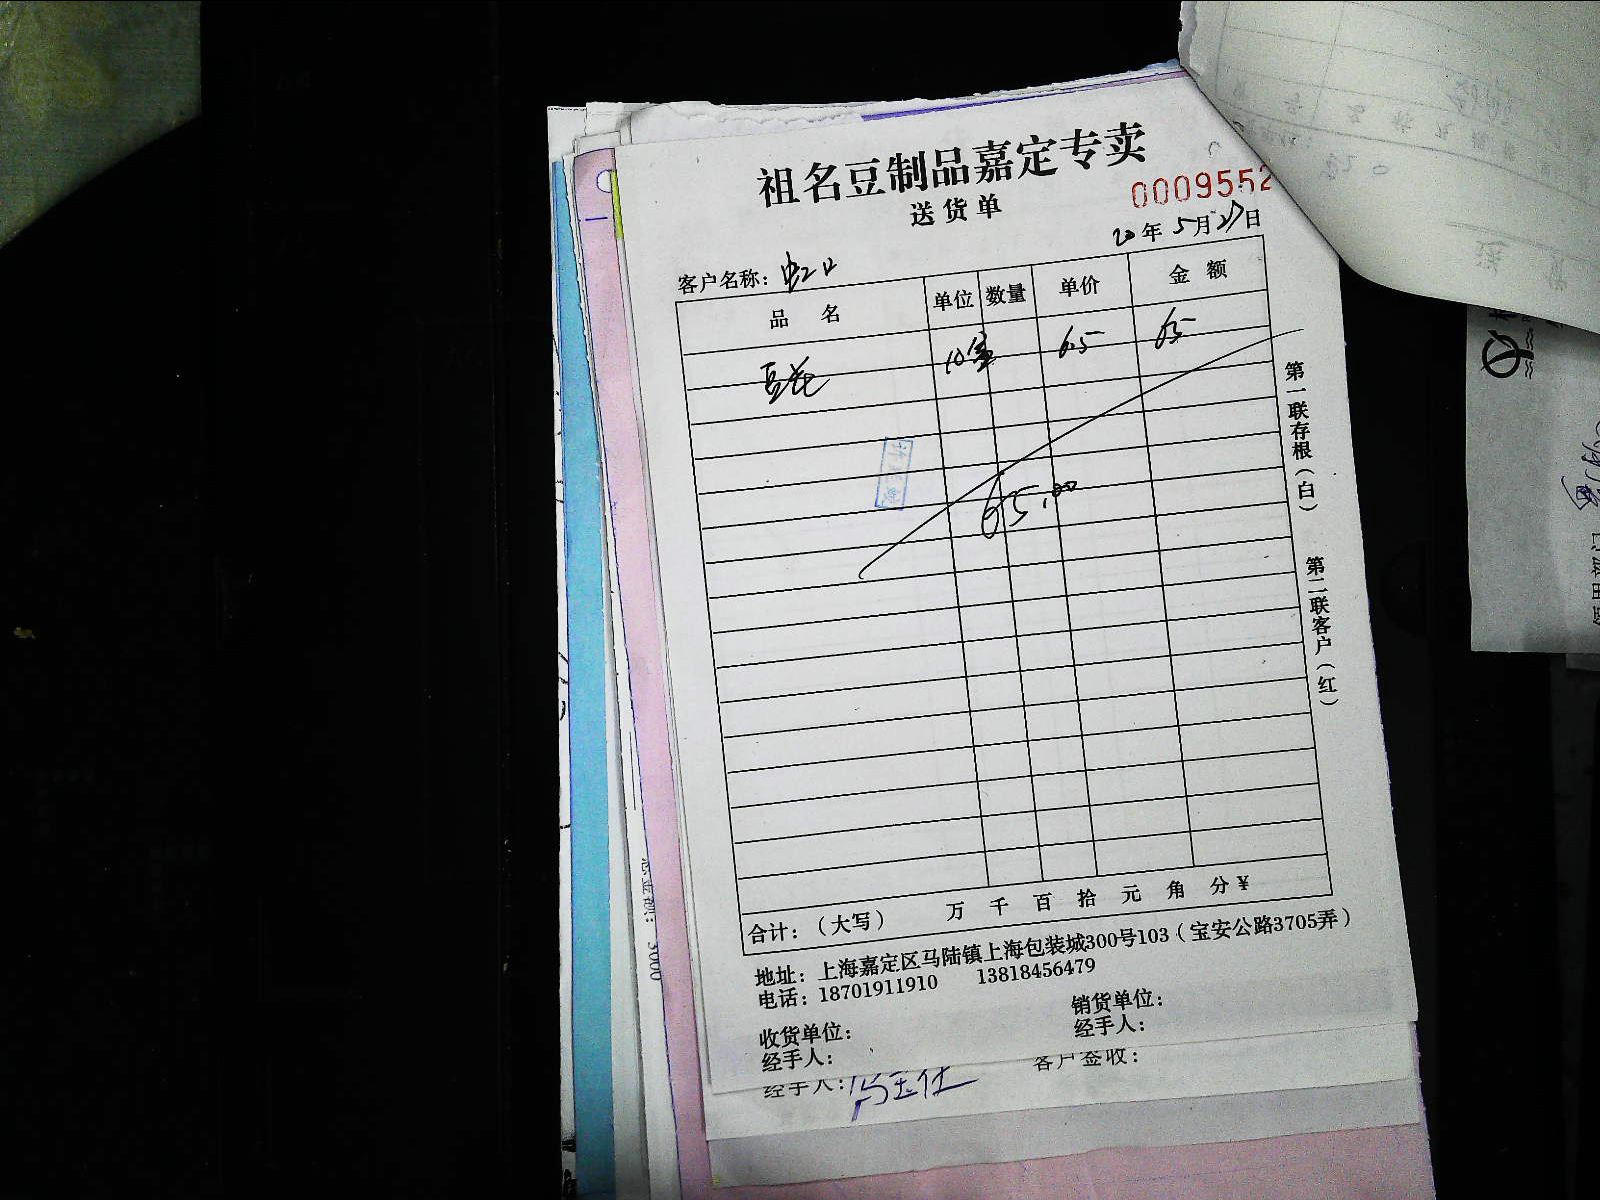 祖名豆制品嘉定专卖
送货单
0009552
20年5月27日
客户名称：虹口
品 名 单位 数量 单价 金 额
豆花 10盒 6.5 65
65.00
第一联存根（白） 第二联客户（红）
合计：（大写） 万 千 百 拾 元 角 分 ¥
地址：上海嘉定区马陆镇上海包装城300号103（宝安公路3705弄）
电话：18701911910 13818456479
收货单位： 销货单位：
经手人： 经手人：
经手人： 客户签收：
总金额： 3000